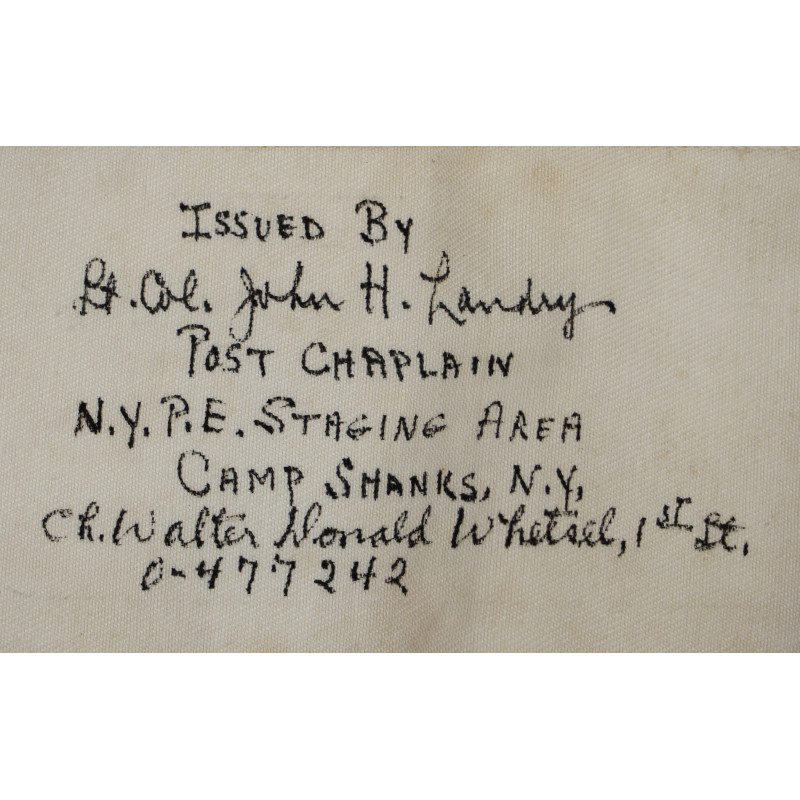 Issued By
Lt. Col. John H. Landry
Post Chaplain
N.Y.P.E. Staging Area
Camp Shanks, N.Y.
Ch. Walter Donald Whetsel, 1st Lt.
0-477242